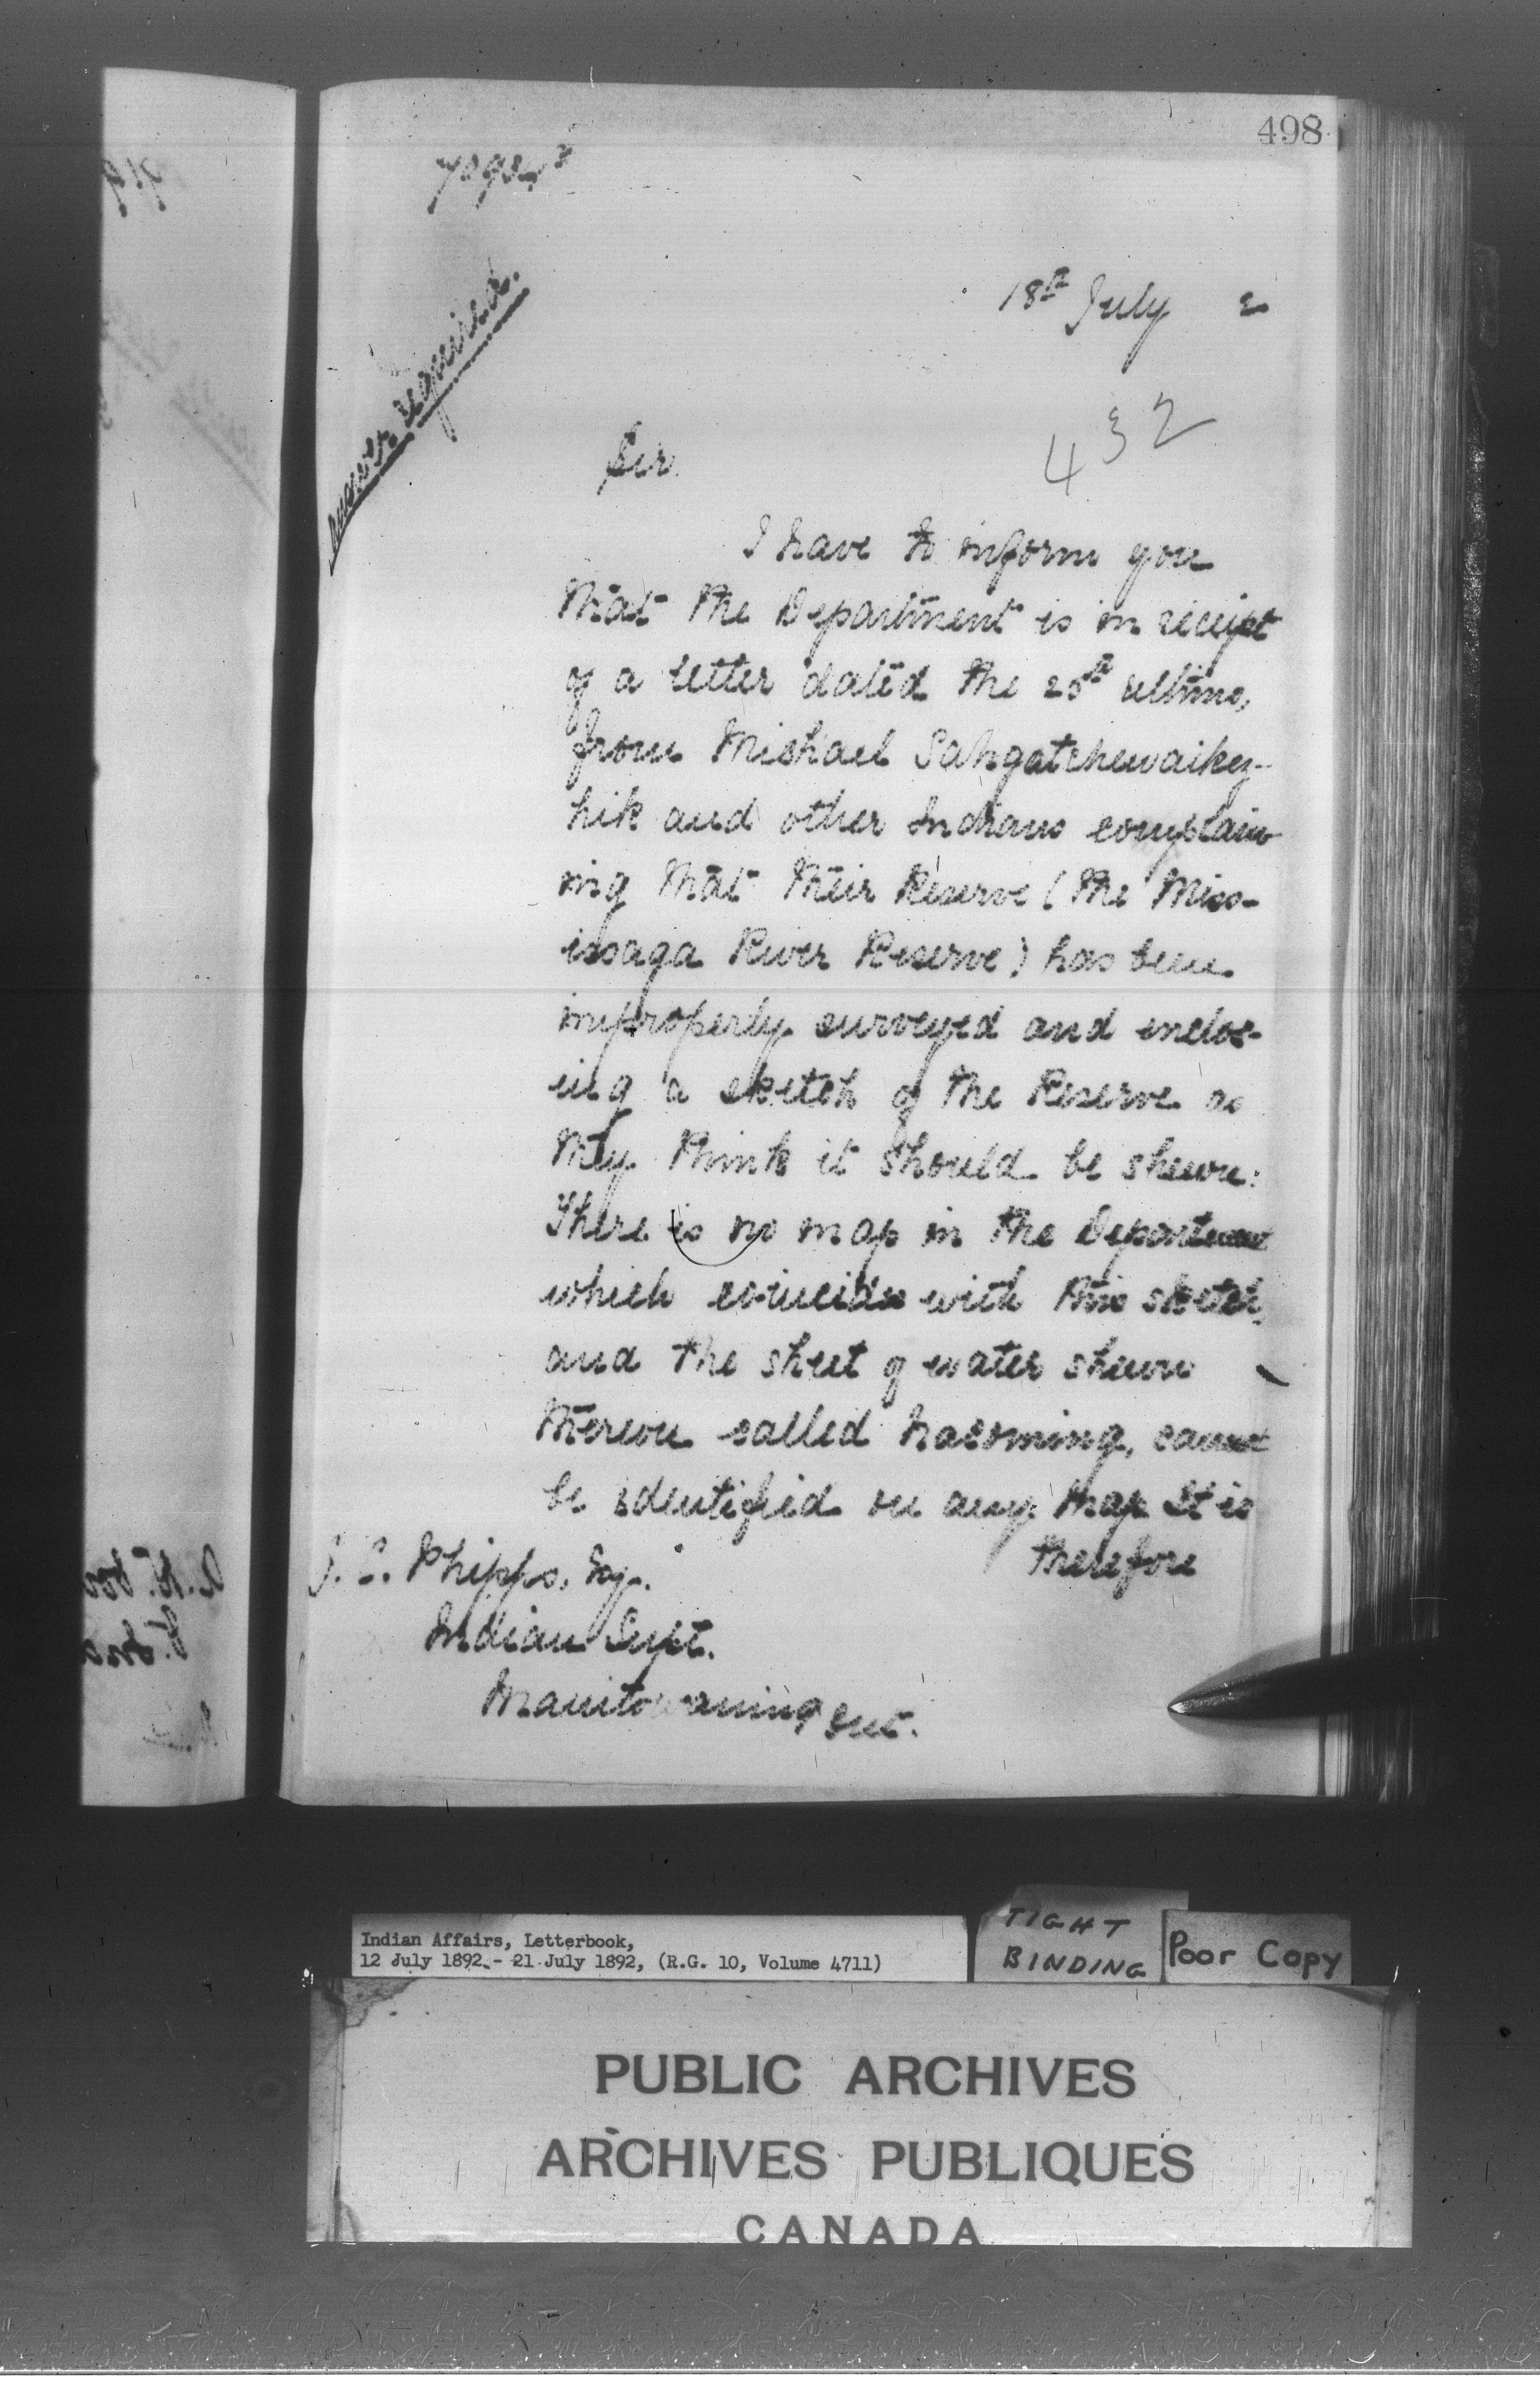 498
18th July 2
Answer required.
432
Sir.
I have to inform you
that the Department is in receipt
of a letter dated the 20th ultimo,
from Michael Sahgatchewaikez-
hik and other Indians complain
ing that their Reserve (the Miss-
issaga River Reserve) has been
improperly surveyed and inclos-
ing a sketch of the Reserve as
they think it should be shewn:
There is no map in the Department
which coincides with this sketch,
and the sheet of water shewn
thereon called Nacoming, cannot
be identified on any map It is
therefore
J. C. Phipps, Esq.
Indian Supt.
Manitowaning Ont.
Indian Affairs, Letterbook,
12 July 1892 - 21 July 1892, (R.G. 10, Volume 4711)
TIGHT
BINDING
Poor Copy
PUBLIC ARCHIVES
ARCHIVES PUBLIQUES
CANADA